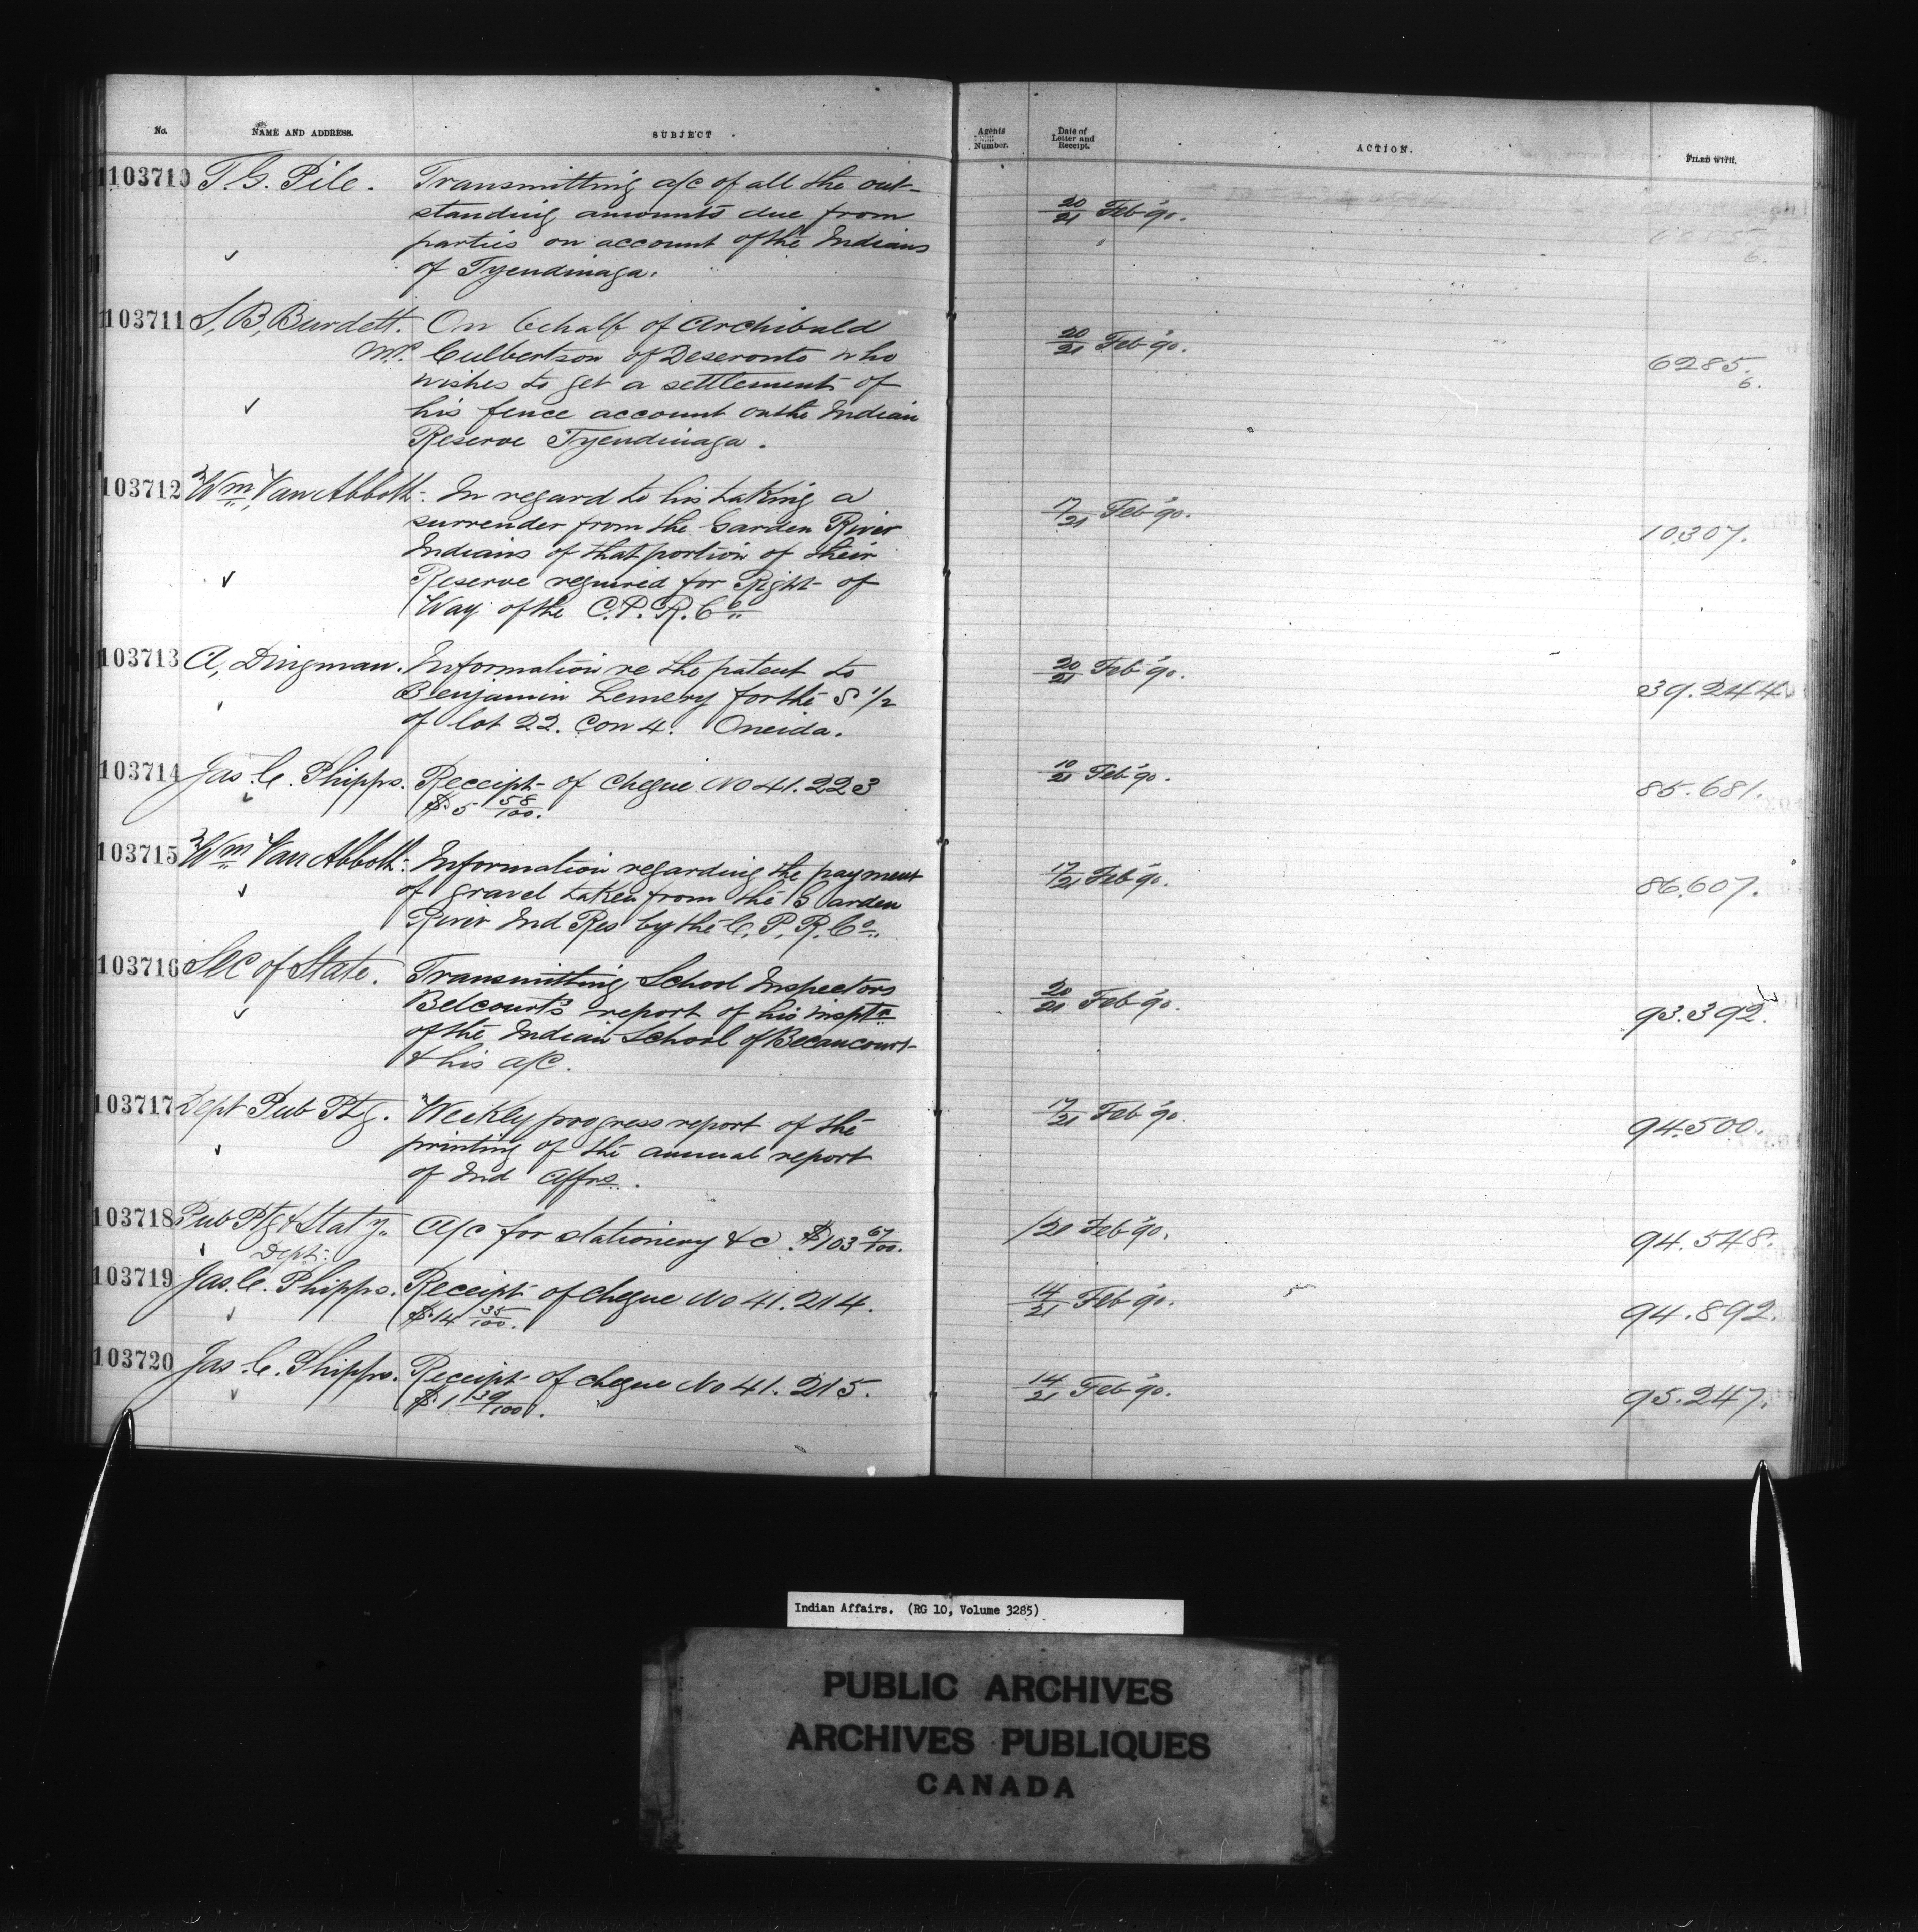 No. NAME AND ADDRESS. SUBJECT
Agents Number. Date of Letter and Receipt. ACTION. FILED WITH.
103710 T G. Pile. Transmitting a/c of all the out-
standing amounts due from
parties on account of the Indians
of Tyendinaga.
20/21 Feb '90.
103711 S, B, Burdett. On behalf of Archibald
M.P. Culbertson of Deseronto who
wishes to get a settlement of
his fence account on the Indian
Reserve Tyendinaga.
20/21 Feb '90. 6285.
6.
103712 Wm Van Abbott. In regard to his taking a
surrender from the Garden River
Indians of that portion of their
Reserve required for Right of
Way of the C.P.R. Co
17/21 Feb '90. 10307.
103713 A, Dingman. Information re the patent to
Benjamin Lemery for the S 1/2
of lot 22. Con 4. Oneida.
20/21 Feb '90. 39.244
103714 Jas. C. Phipps. Receipt of Cheque No 41.223
$.5 58/100.
10/21 Feb '90. 85.681.
103715 Wm Van Abbott. Information regarding the payment
of gravel taken from the Garden
River Ind Res by the C, P, R, Co.
17/21 Feb '90. 86.607.
103716 Sec of State. Transmitting School Inspectors
Belcourt's report of his insptn
of the Indian School of Becancourt
& his a/c.
20/21 Feb '90. 93.392.
103717 Dept Pub Ptg. Weekly progress report of the
printing of the annual report
of Ind Affrs.
17/21 Feb '90. 94.500.
103718 Pub Ptg & Stat'y A/c for stationery &c. $103 67/100.
Dept.
/21 Feb '90. 94.548.
103719 Jas. C. Phipps. Receipt of cheque No 41.214.
$.14 35/100.
14/21 Feb '90. 94.892.
103720 Jas. C. Phipps. Receipt of cheque No 41.215.
$.1 39/100.
14/21 Feb '90. 95.247.
Indian Affairs. (RG 10, Volume 3285)
PUBLIC ARCHIVES
ARCHIVES PUBLIQUES
CANADA